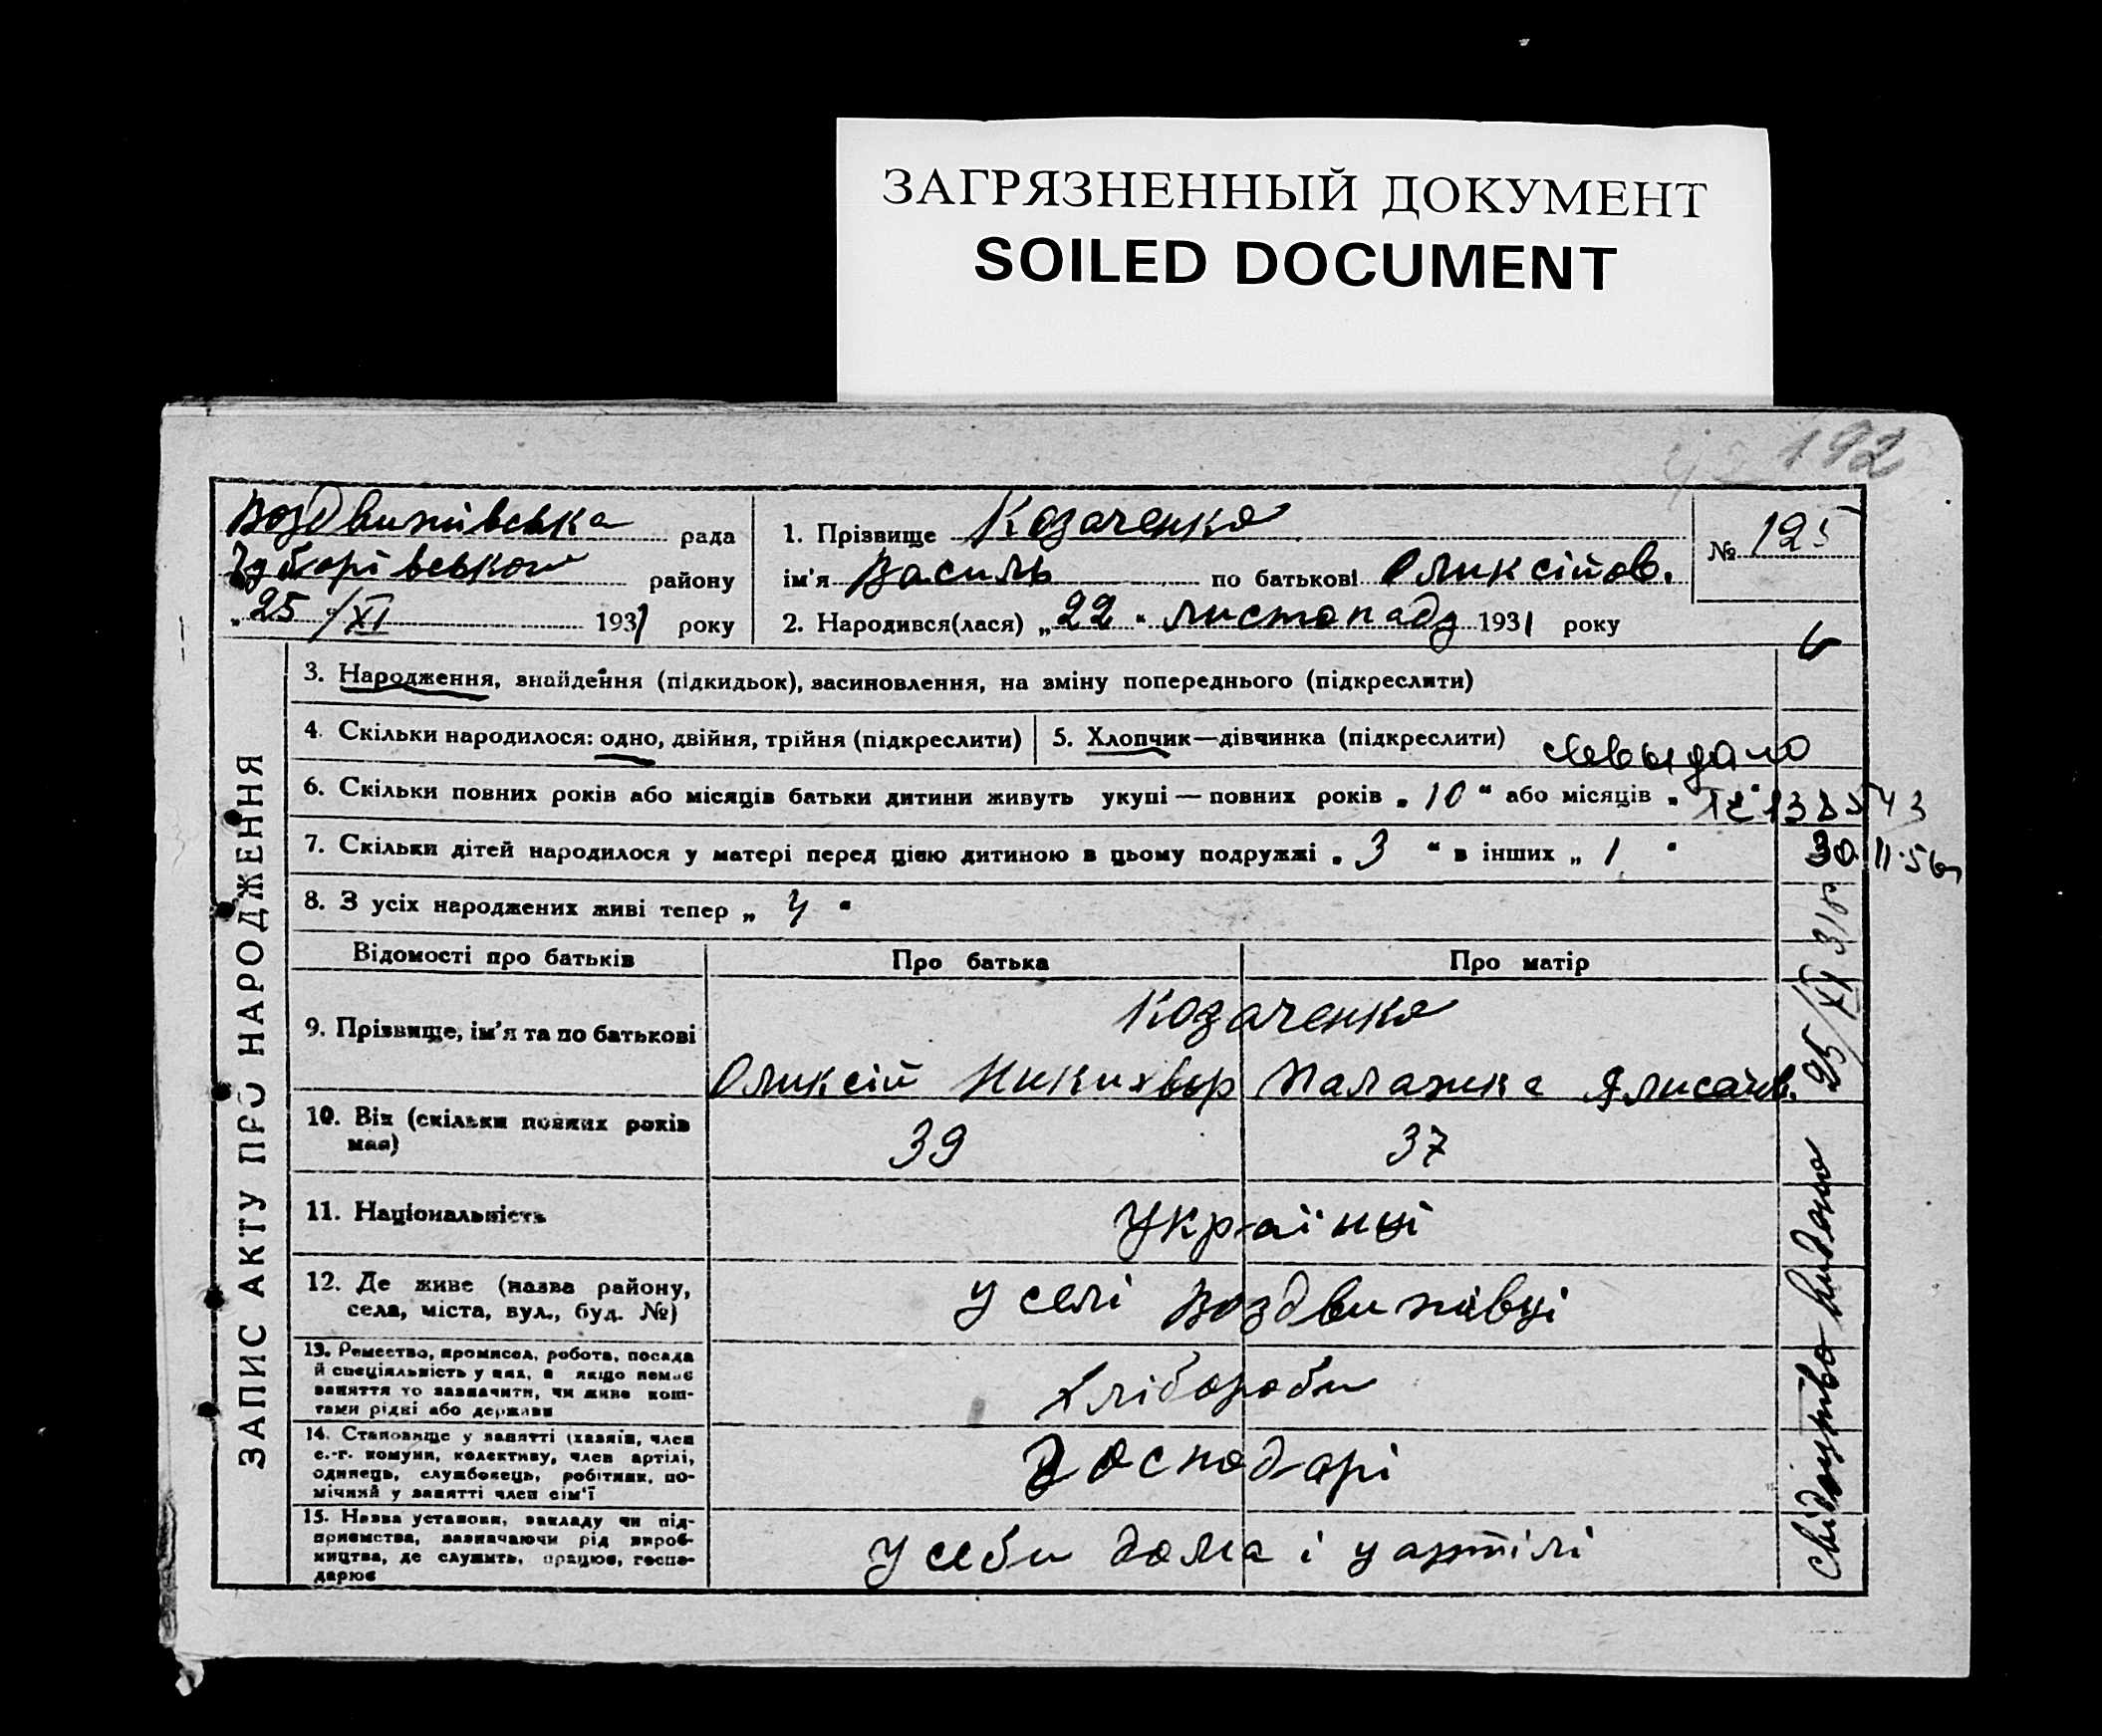 ЗАГРЯЗНЕННЫЙ ДОКУМЕНТ
SOILED DOCUMENT
192
Воздвижівська рада
району
„25/XI 1931 року
1. Прізвище Козаченко
ім'я Василь по батькові Оликсійов.
2. Народився(лася) „22" листопаду 1931 року
№ 125
ЗАПИС АКТУ ПРО НАРОДЖЕННЯ
3. Народження, знайдення (підкидьок), засиновлення, на зміну попереднього (підкреслити)
4. Скільки народилося: одно, двійня, трійня (підкреслити)
5. Хлопчик—дівчинка (підкреслити)
6. Скільки повних років або місяців батьки дитини живуть укупі — повних років „10" або місяців „
30.11.56
7. Скільки дітей народилося у матері перед цією дитиною в цьому подружжі „3" в інших „1"
8. З усіх народжених живі тепер „4"
Відомості про батьків
Про батька
Про матір
9. Прізвище, ім'я та по батькові
Козаченко
Оликсій Никихвор
Палажка
10. Вік (скільки повних років
має)
39
37
11. Національність
Українці
12. Де живе (назва району,
села, міста, вул., буд. №)
у селі Воздвижівці
13. Ремество, промисел, робота, посада
й спеціяльність у них, а якщо немає
заняття то зазначити, чи живе кош-
тами рідні або держави
Хлібороби
14. Становище у занятті (хазяїн, член
с.-г. комуни, колективу, член артілі,
одинець, службовець, робітник, по-
мічний у занятті член сім'ї
Господарі
15. Назва установи, закладу чи під-
приємства, зазначаючи рід вироб-
ництва, де служить, працює, госпо-
дарює
у себи дома і у артілі
свідоцтво видано 25/XI 31р